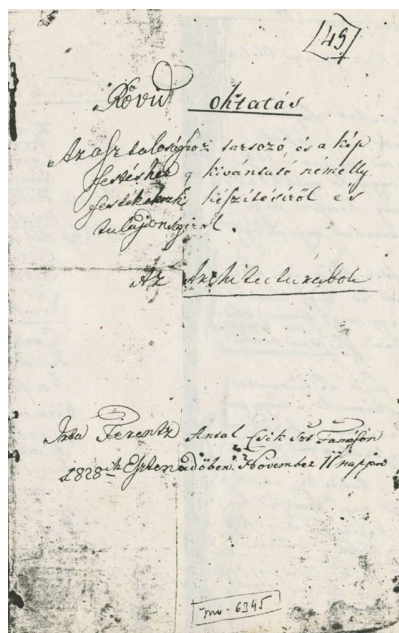 49
Rövid oktatás
Az asztalosághoz tartozó, és a kép
festéshez kivántató némelly
festékeknek készítéséről és
tulajdonságiról.
Az Architecturából
Irta Ferentz Antal Csik Szt Tamáson
1828ik Esztendőben November 11 napján
mv. 6345